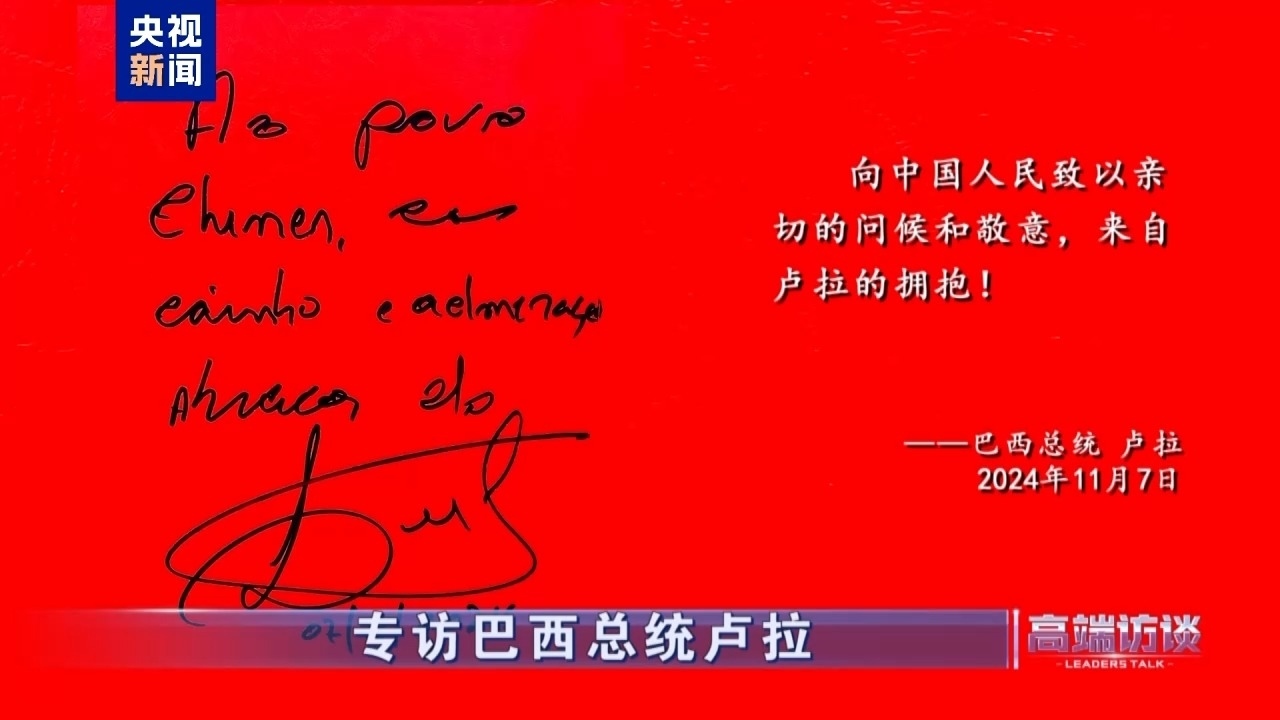 央视
新闻
Ao povo
Chines, com
carinho e admiração
Abraços do
Lula
向中国人民致以亲
切的问候和敬意，来自
卢拉的拥抱！
——巴西总统 卢拉
2024年11月7日
专访巴西总统卢拉
高端访谈
-LEADERS TALK-